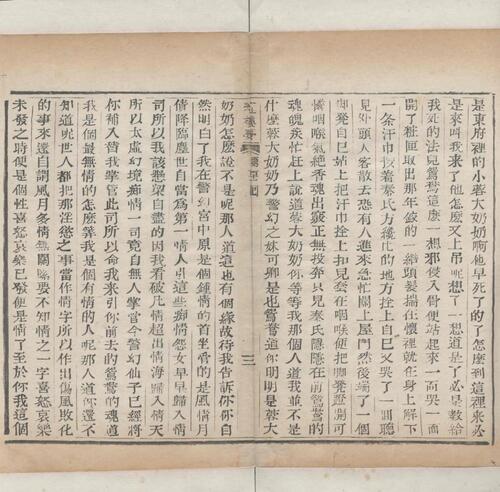 是東府裡的小蓉大奶奶啊他早死了的了怎麽到這裡來必
是來叫我來了他怎麽又上吊呢想了一想道是了必是教給
我死的法兒鴛鴦這麽一想邪侵入骨便站起來一面哭一面
開了粧匣取出那年絞的一綹頭髮揣在懷裡就在身上解下
一條汗巾按著秦氏方纔比的地方拴上自己又哭了一回聽
見外頭人客散去恐有人進來急忙關上屋門然後端了一個
脚凳自己站上把汗巾拴上扣兒套在咽喉便把脚凳蹬開可
憐咽喉氣絶香魂出竅正無投奔只見秦氏隱隱在前鴛鴦的
魂魄疾忙赶上說道蓉大奶奶你等等我那個人道我並不是
什麽蓉大奶奶乃警幻之妹可卿是也鴛鴦道你明明是蓉大
紅樓夢
三
奶奶怎麽說不是呢那人道這也有個緣故待我告訴你你自
然明白了我在警幻宮中原是個鍾情的首坐管的是風情月
債降臨塵世自當為第一情人引這些痴情怨女早早歸入情
司所以我該懸梁自盡的因我看破凡情超出情海歸入情天
所以太虛幻境痴情一司竟自無人掌管今警幻仙子已經將
你補入替我掌管此司所以命我來引你前去的鴛鴦的魂道
我是個最無情的怎麽算我是個有情的人呢那人道你還不
知道呢世人都把那淫慾之事當作情字所以作出傷風敗化
的事來還自謂風月多情無關緊要不知情之一字喜怒哀樂
未發之時便是個性喜怒哀樂已發便是情了至於你我這個